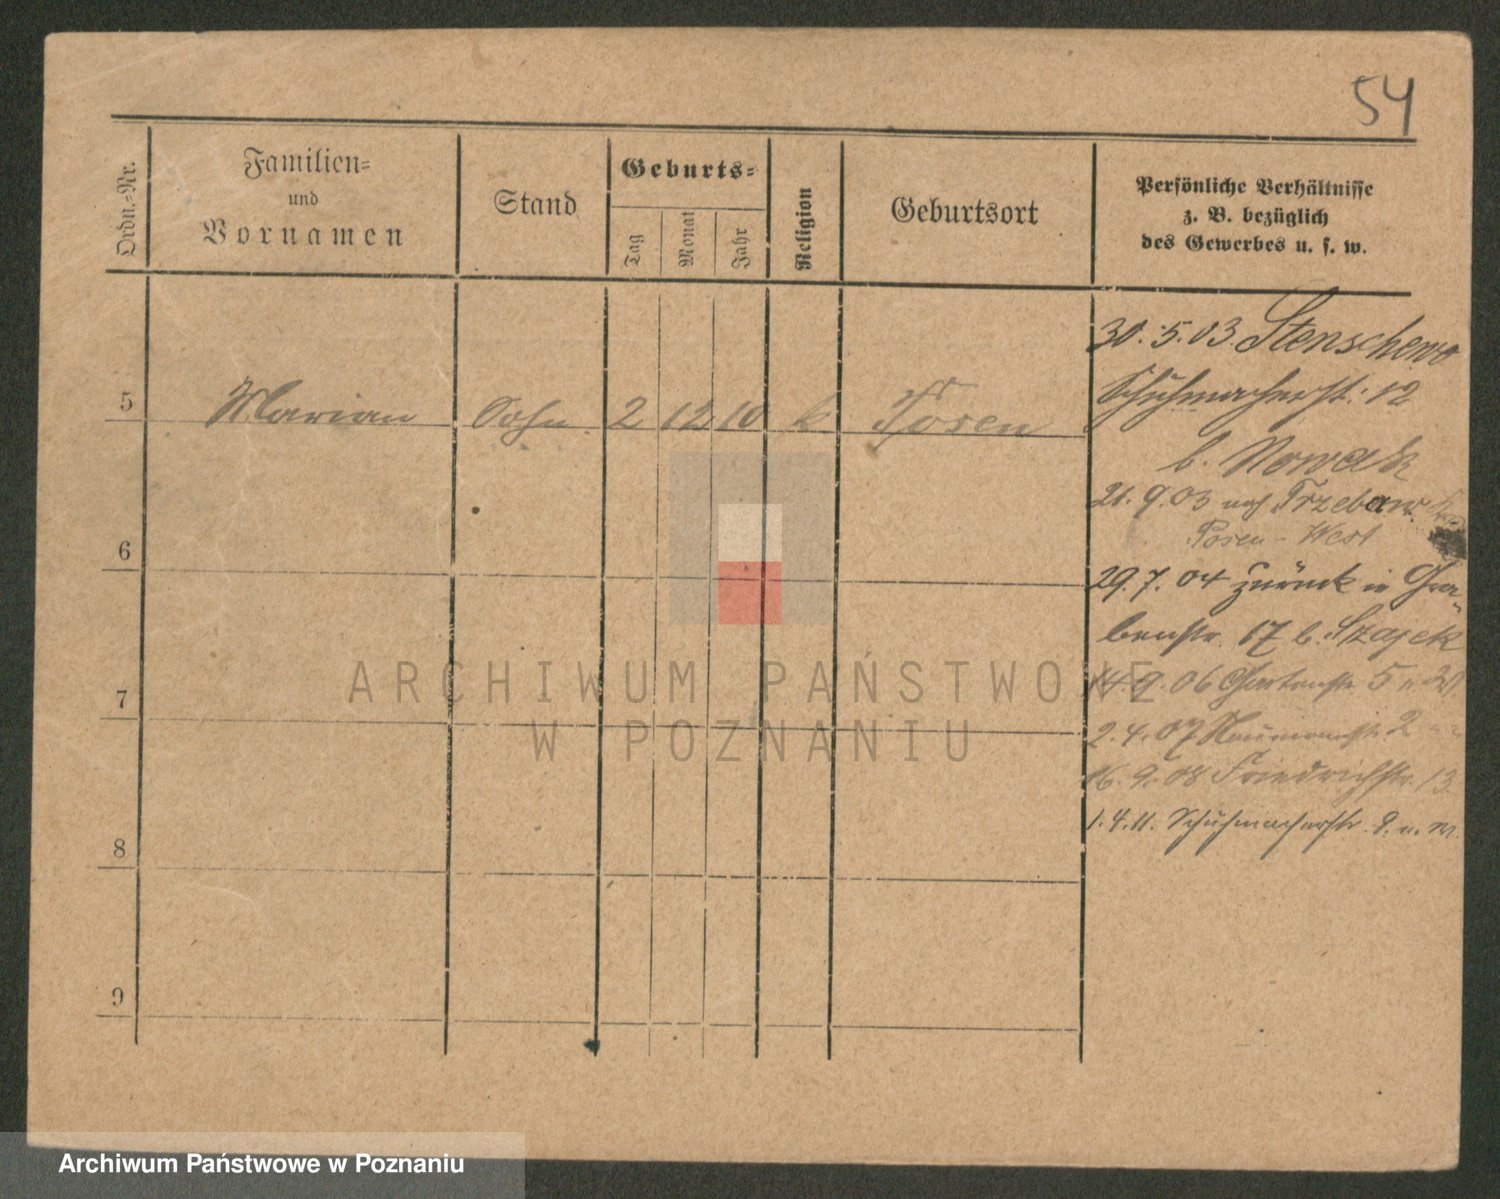 54
Ordn.-Nr.
Familien-
und
Vornamen
Stand
Geburts-
Tag
Monat
Jahr
Religion
Geburtsort
Persönliche Verhältnisse
z. B. bezüglich
des Gewerbes u. s. w.
5 Marian Sohn 2 12 10 k Posen
6
7
8
9
30.5.03 Stenschewo
Schuhmacherst. 12
b. Nowak
21.9.03 nach Trzebaw
Posen-West
29.7.04 zurück in Gra-
benstr. 17 b. Szajek
14.9.06 Gartenstr. 5
2.4.07 Naumannstr. 2
16.9.08 Friedrichstr. 13
1.4.11. Schuhmacherstr.
ARCHIWUM PAŃSTWOWE
W POZNANIU
Archiwum Państwowe w Poznaniu